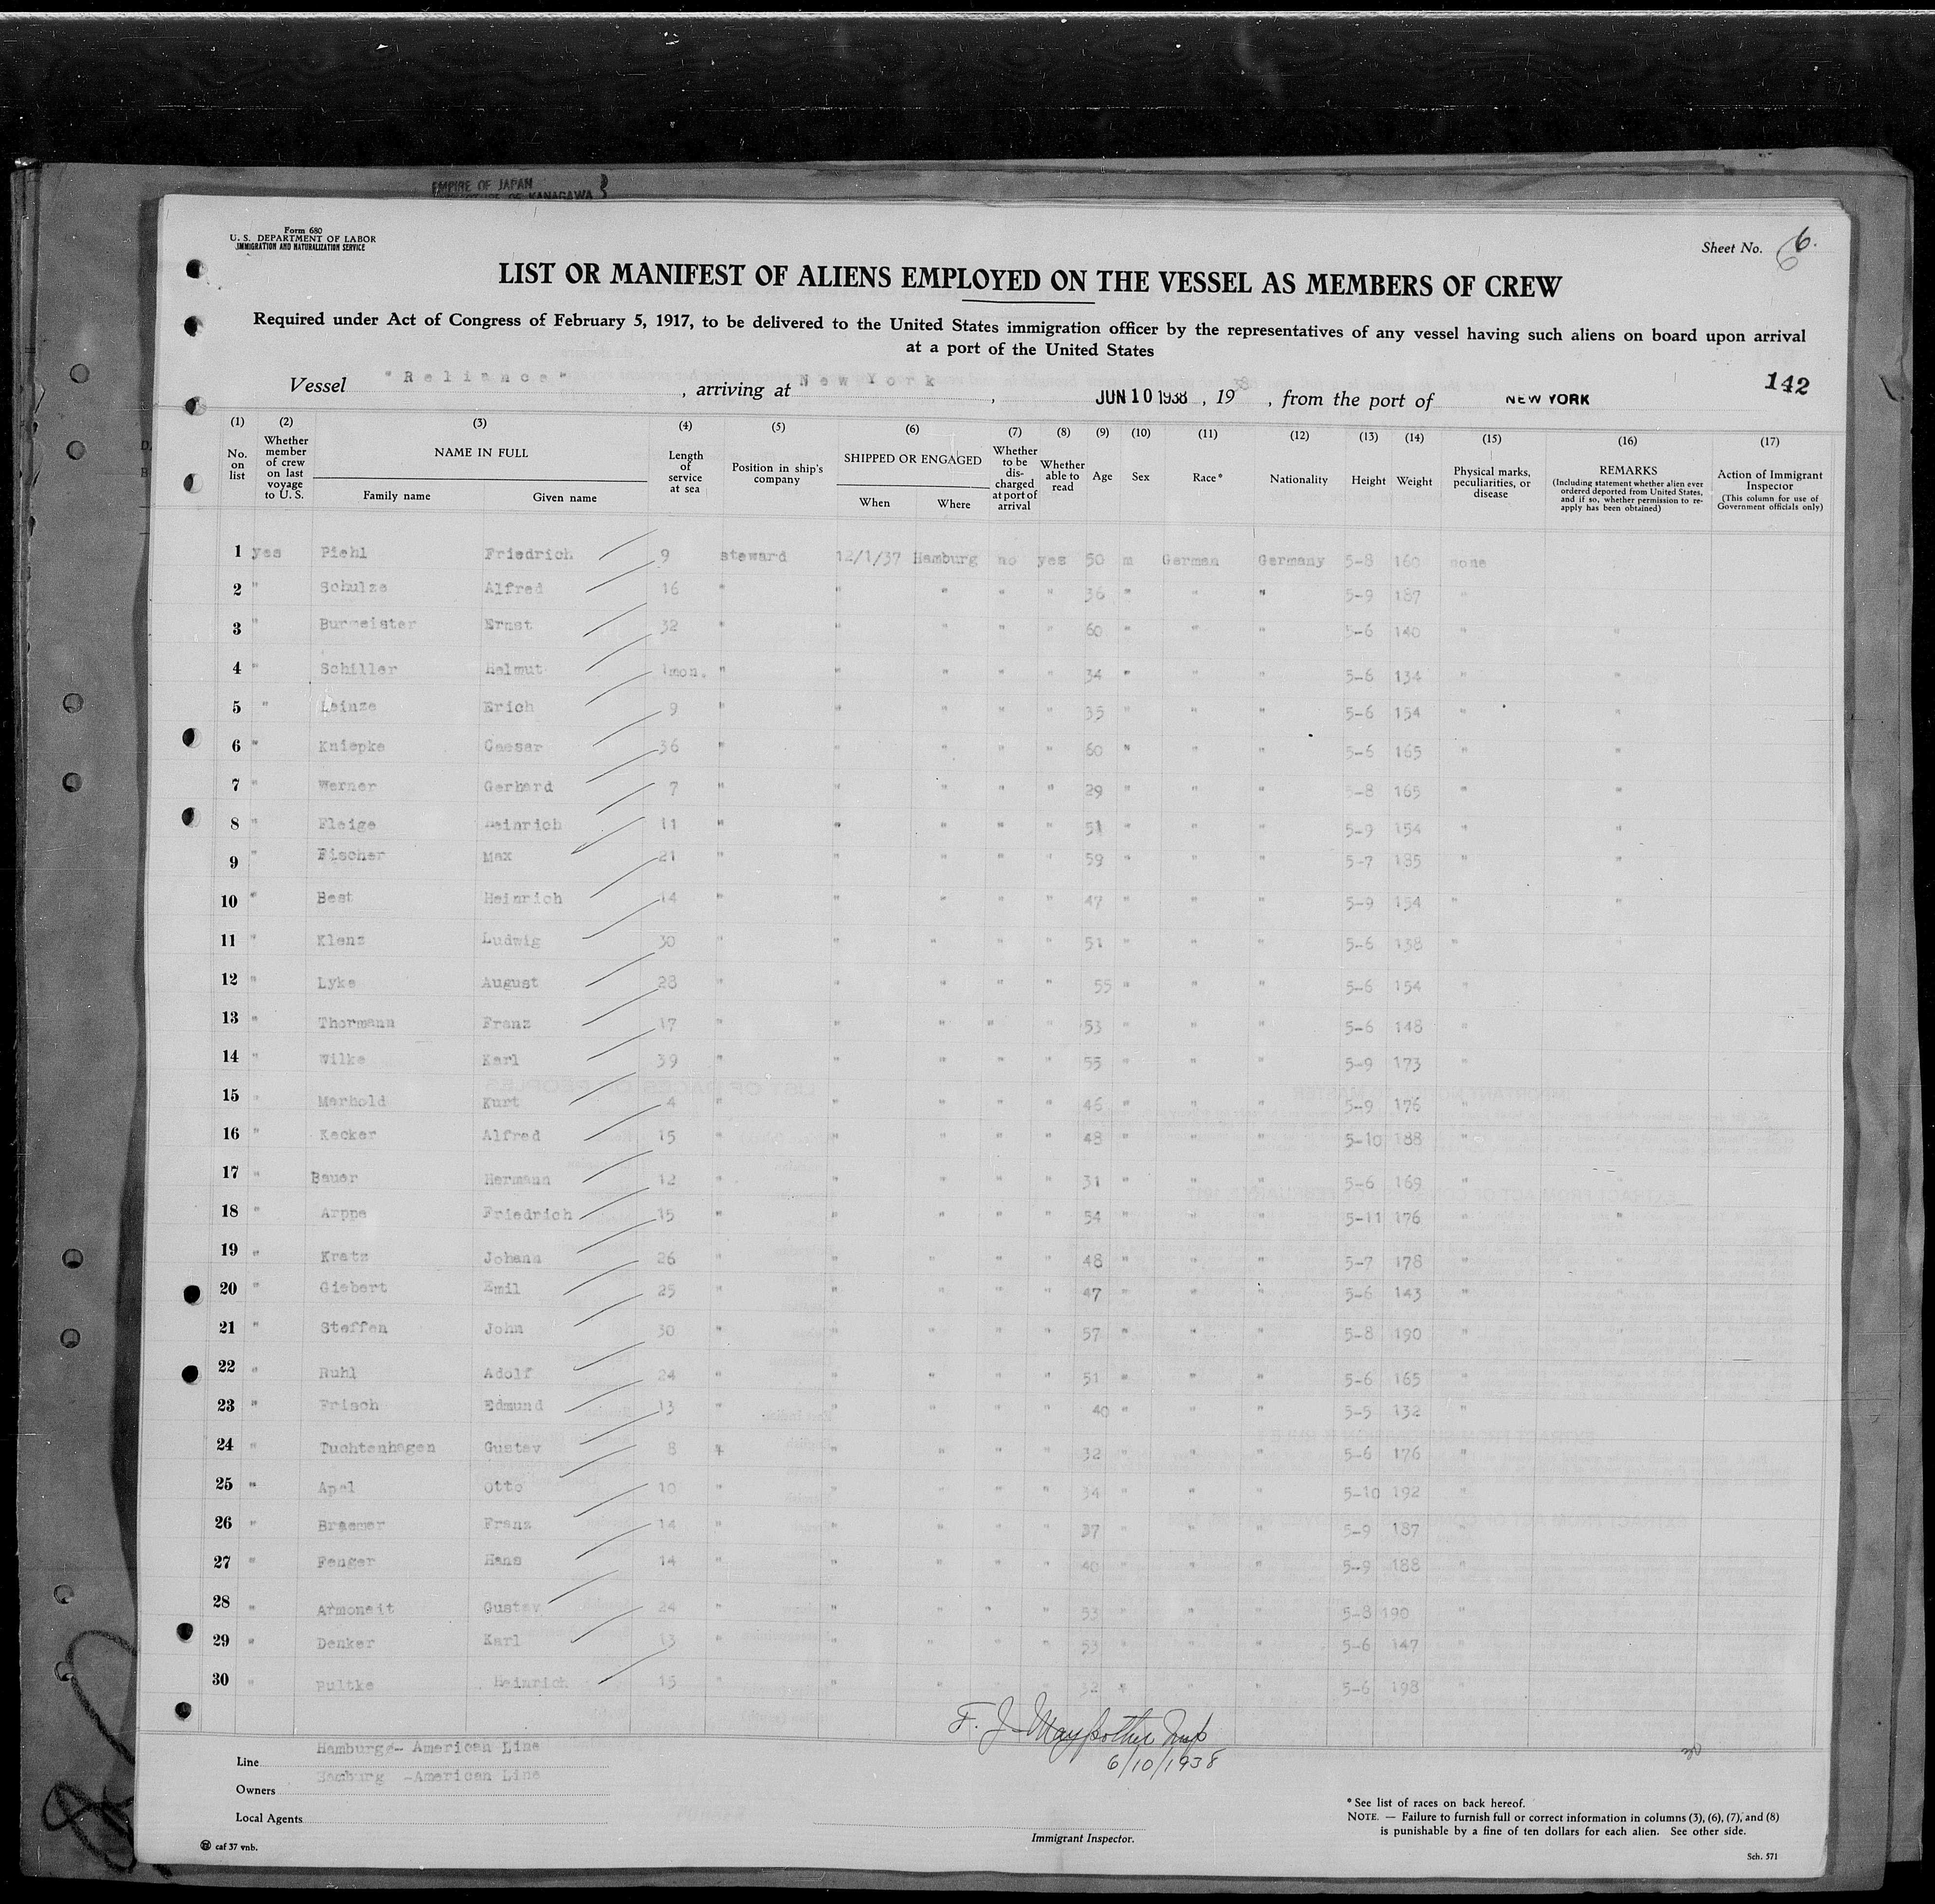 EMPIRE OF JAPAN
OF KANAGAWA
Form 680
U. S. DEPARTMENT OF LABOR
IMMIGRATION AND NATURALIZATION SERVICE
Sheet No. 6.
6
LIST OR MANIFEST OF ALIENS EMPLOYED ON THE VESSEL AS MEMBERS OF CREW
Required under Act of Congress of February 5, 1917, to be delivered to the United States immigration officer by the representatives of any vessel having such aliens on board upon arrival
at a port of the United States
Vessel "Reliance", arriving at New York, JUN 10 1938, 1938, from the port of NEW YORK
142
(1) No. on list
(2) Whether member of crew on last voyage to U. S.
(3) NAME IN FULL
Family name Given name
(4) Length of service at sea
(5) Position in ship's company
(6) SHIPPED OR ENGAGED
When Where
(7) Whether to be discharged at port of arrival
(8) Whether able to read
(9) Age
(10) Sex
(11) Race*
(12) Nationality
(13) Height
(14) Weight
(15) Physical marks, peculiarities, or disease
(16) REMARKS
(Including statement whether alien ever ordered deported from United States, and if so, whether permission to re-apply has been obtained)
(17) Action of Immigrant Inspector
(This column for use of Government officials only)
1 yes Piehl Friedrich 9 steward 12/1/37 Hamburg no yes 50 m German Germany 5-8 160 none
2 " Schulze Alfred 16 " " " " " 36 " " " 5-9 187 "
3 " Burmeister Ernst 32 " " " " " 60 " " " 5-6 140 " "
4 " Schiller Helmut 1mon. " " " " " 34 " " " 5-6 134 " "
5 " Leinze Erich 9 " " " " " 35 " " " 5-6 154 " "
6 " Kniepke Caesar 36 " " " " " 60 " " " 5-6 165 " "
7 " Werner Gerhard 7 " " " " " 29 " " " 5-8 165 " "
8 " Fleige Heinrich 11 " " " " " 51 " " " 5-9 154 " "
9 " Fischer Max 21 " " " " " 59 " " " 5-7 185 " "
10 " Best Heinrich 14 " " " " " 47 " " " 5-9 154 " "
11 " Klenz Ludwig 30 " " " " " 51 " " " 5-6 138 " "
12 " Lyke August 28 " " " " " 55 " " " 5-6 154 "
13 " Thormann Franz 17 " " " " " 53 " " " 5-6 148 "
14 " Wilke Karl 39 " " " " " 55 " " " 5-9 173 "
15 " Merhold Kurt 4 " " " " " 46 " " " 5-9 176 "
16 " Kecker Alfred 15 " " " " " 48 " " " 5-10 188 "
17 " Bauer Hermann 12 " " " " " 31 " " " 5-6 169 "
18 " Arppe Friedrich 15 " " " " " 54 " " " 5-11 176 " "
19 " Kratz Johann 26 " " " " " 48 " " " 5-7 178 "
20 " Giebert Emil 25 " " " " " 47 " " " 5-6 143 "
21 " Steffen John 30 " " " " " 57 " " " 5-8 190 "
22 " Ruhl Adolf 24 " " " " " 51 " " " 5-6 165 "
23 " Frisch Edmund 13 " " " " " 40 " " " 5-5 132 "
24 " Tuchtenhagen Gustav 8 " " " " " 32 " " " 5-6 176 "
25 " Apel Otto 10 " " " " " 34 " " " 5-10 192 "
26 " Braemer Franz 14 " " " " " 37 " " " 5-9 187 "
27 " Fenger Hans 14 " " " " " 40 " " " 5-9 188 "
28 " Armoneit Gustav 24 " " " " " 53 " " " 5-8 190 "
29 " Denker Karl 13 " " " " " 53 " " " 5-6 147 "
30 " Bultke Heinrich 15 " " " " " 32 " " " 5-6 198 "
F. J.
6/10/1938
30
Line Hamburg- American Line
Owners Hamburg -American Line
Local Agents
Immigrant Inspector.
* See list of races on back hereof.
NOTE. — Failure to furnish full or correct information in columns (3), (6), (7), and (8)
is punishable by a fine of ten dollars for each alien. See other side.
caf 37 vnb.
Sch. 571